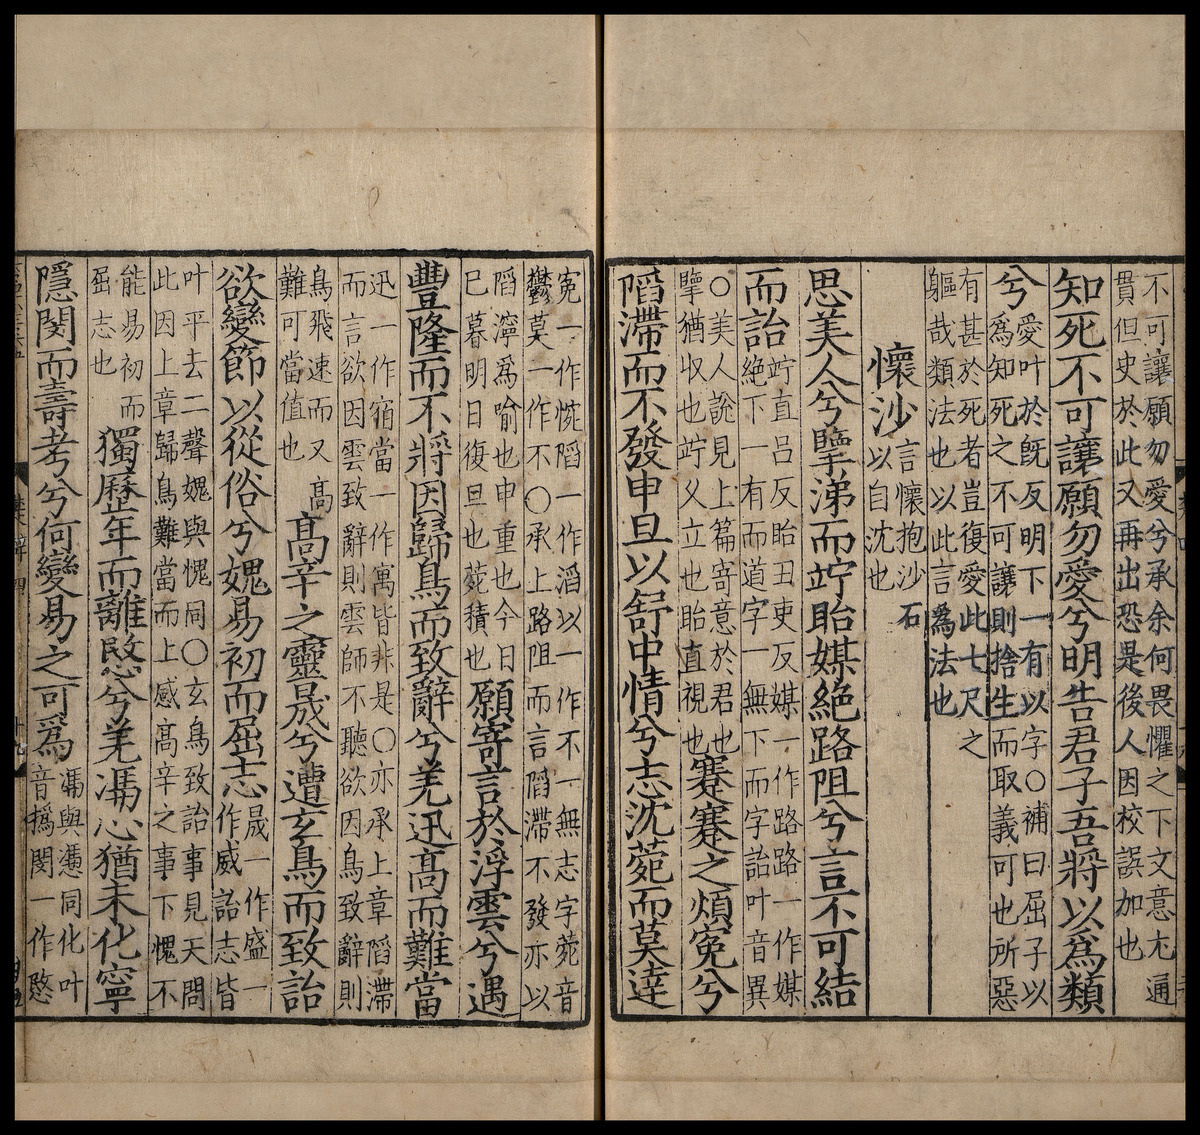 不可讓願勿愛兮承余何畏懼之下文意尤通
貫但史於此又再出恐是後人因校誤加也
知死不可讓願勿愛兮明告君子吾將以爲類
兮
愛叶於既反明下一有以字○補曰屈子以
爲知死之不可讓則捨生而取義可也所惡
有甚於死者豈復愛此七尺之
軀哉類法也以此言爲法也
懷沙
言懷抱沙石
以自沈也
思美人兮擥涕而竚眙媒絶路阻兮言不可結
而詒
竚直呂反眙丑吏反媒一作路路一作媒
絶下一有而道字一無下而字詒叶音異
○美人說見上篇寄意於君也
擥猶収也竚乂立也眙直視也
蹇蹇之煩寃兮
陷滯而不發申旦以舒中情兮志沈菀而莫達
寃一作惌陷一作滔以一作不一無志字菀音
鬱莫一作不○承上路阻而言陷滯不發亦以
陷濘爲喻也申重也今日
已暮明日復旦也菀積也
願寄言於浮雲兮遇
豐隆而不將因歸鳥而致辭兮羌迅高而難當
迅一作宿當一作寓皆非是○亦承上章陷滯
而言欲因雲致辭則雲師不聽欲因鳥致辭則
鳥飛速而又高
難可當值也
高辛之靈晟兮遭玄鳥而致詒
欲變節以從俗兮媿易初而屈志
晟一作盛一
作威詒志皆
叶平去二聲媿與愧同○玄鳥致詒事見天問
此因上章歸鳥難當而上感高辛之事下愧不
能易初而
屈志也
獨歷年而離愍兮羌馮心猶未化寧
隱閔而壽考兮何變易之可爲
馮與憑同化叶
音撝閔一作愍
楚辭四
十九